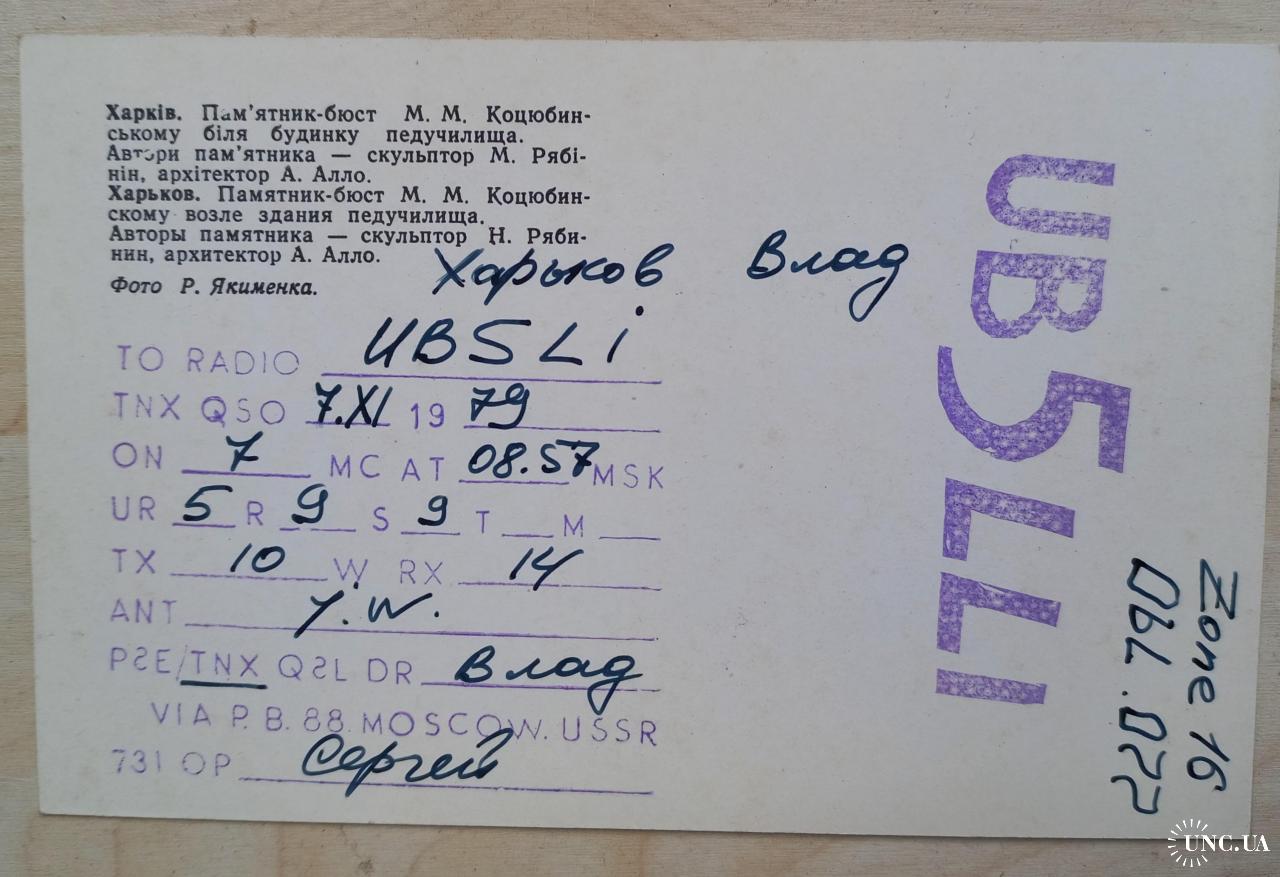 Харків. Пам'ятник-бюст М. М. Коцюбин-
ському біля будинку педучилища.
Автори пам'ятника — скульптор М. Рябі-
нін, архітектор А. Алло.
Харьков. Памятник-бюст М. М. Коцюбин-
скому возле здания педучилища.
Авторы памятника — скульптор Н. Ряби-
нин, архитектор А. Алло.
Фото Р. Якименка.
Харьков Влад
TO RADIO UB5LI
TNX QSO 7.XI 1979
ON 7 MC AT 08.57 MSK
UR 5 R 9 S 9 T M
TX 10 W RX 14
ANT
PSE/TNX QSL DR Влад
VIA P. B. 88. MOSCOW. USSR
731 OP Сергей
UB5LLI
Zone 16
Obl. 077
UNC.UA